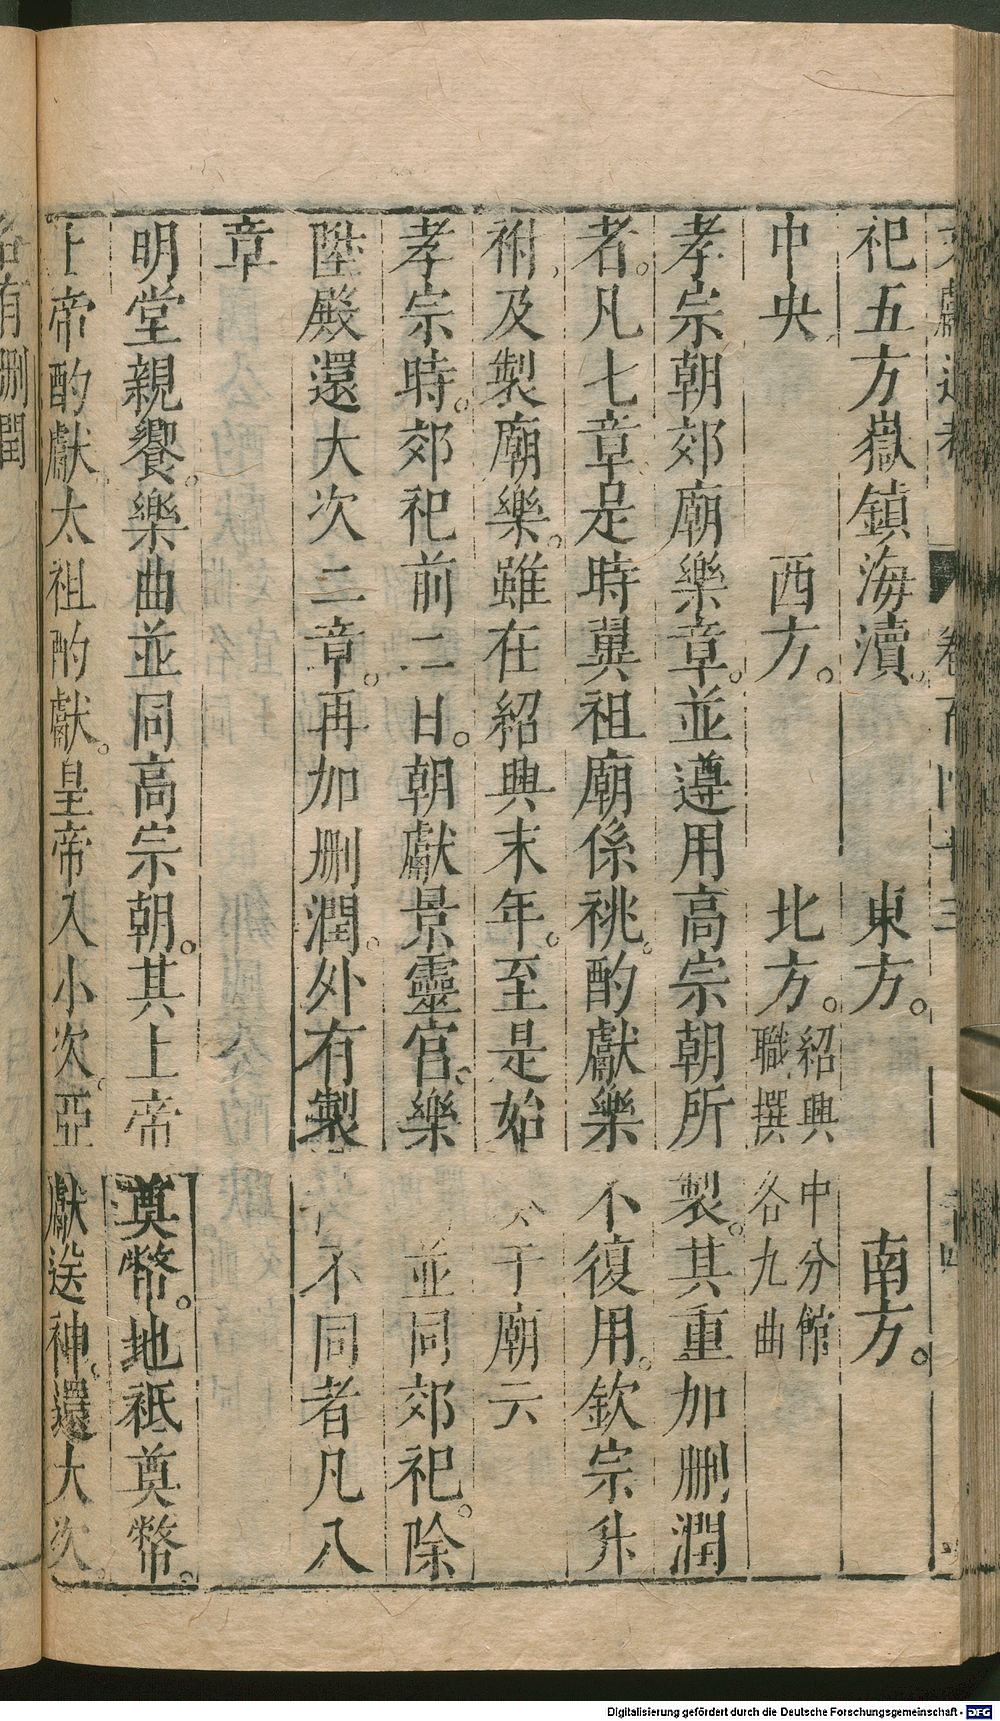 祀五方嶽鎮海瀆。東方。南方。
中央 西方。北方。紹興中分館職撰各九曲
孝宗朝郊廟樂章。並遵用高宗朝所製。其重加刪潤
者。凡七章是時翼祖廟係祧。酌獻樂不復用。欽宗升
祔,及製廟樂。雖在紹興末年。至是始 于廟云
孝宗時。郊祀前二日。朝獻景靈官。樂 並同郊祀。除
陞殿還大次二章。再加刪潤。外有製 不同者凡八
章
明堂親饗。樂曲並同高宗朝。其上帝奠幣。地祇奠幣。
上帝酌獻。太祖酌獻。皇帝入小次。亞獻送神。還大次。
有刪潤
Digitalisierung gefördert durch die Deutsche Forschungsgemeinschaft - DFG